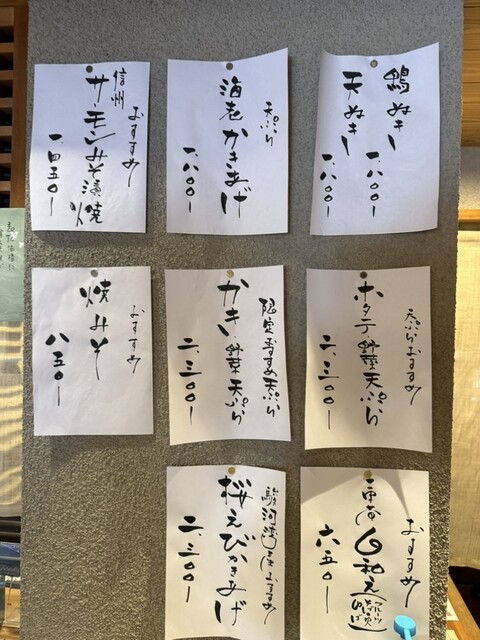 鴨ぬき
一、八〇〇ー
天ぬき
一、八〇〇ー
天ぷら
海老かきあげ
一、八〇〇ー
おすすめ
信州
サーモンみそ漬焼
一、四五〇ー
天ぷらおすすめ
ホタテ野菜天ぷら
二、三〇〇ー
限定おすすめ天ぷら
かき野菜天ぷら
二、三〇〇ー
おすすめ
焼みそ
八五〇ー
おすすめ
の和え
六五〇ー
駿河湾産おすすめ
桜えびかきあげ
二、三〇〇ー